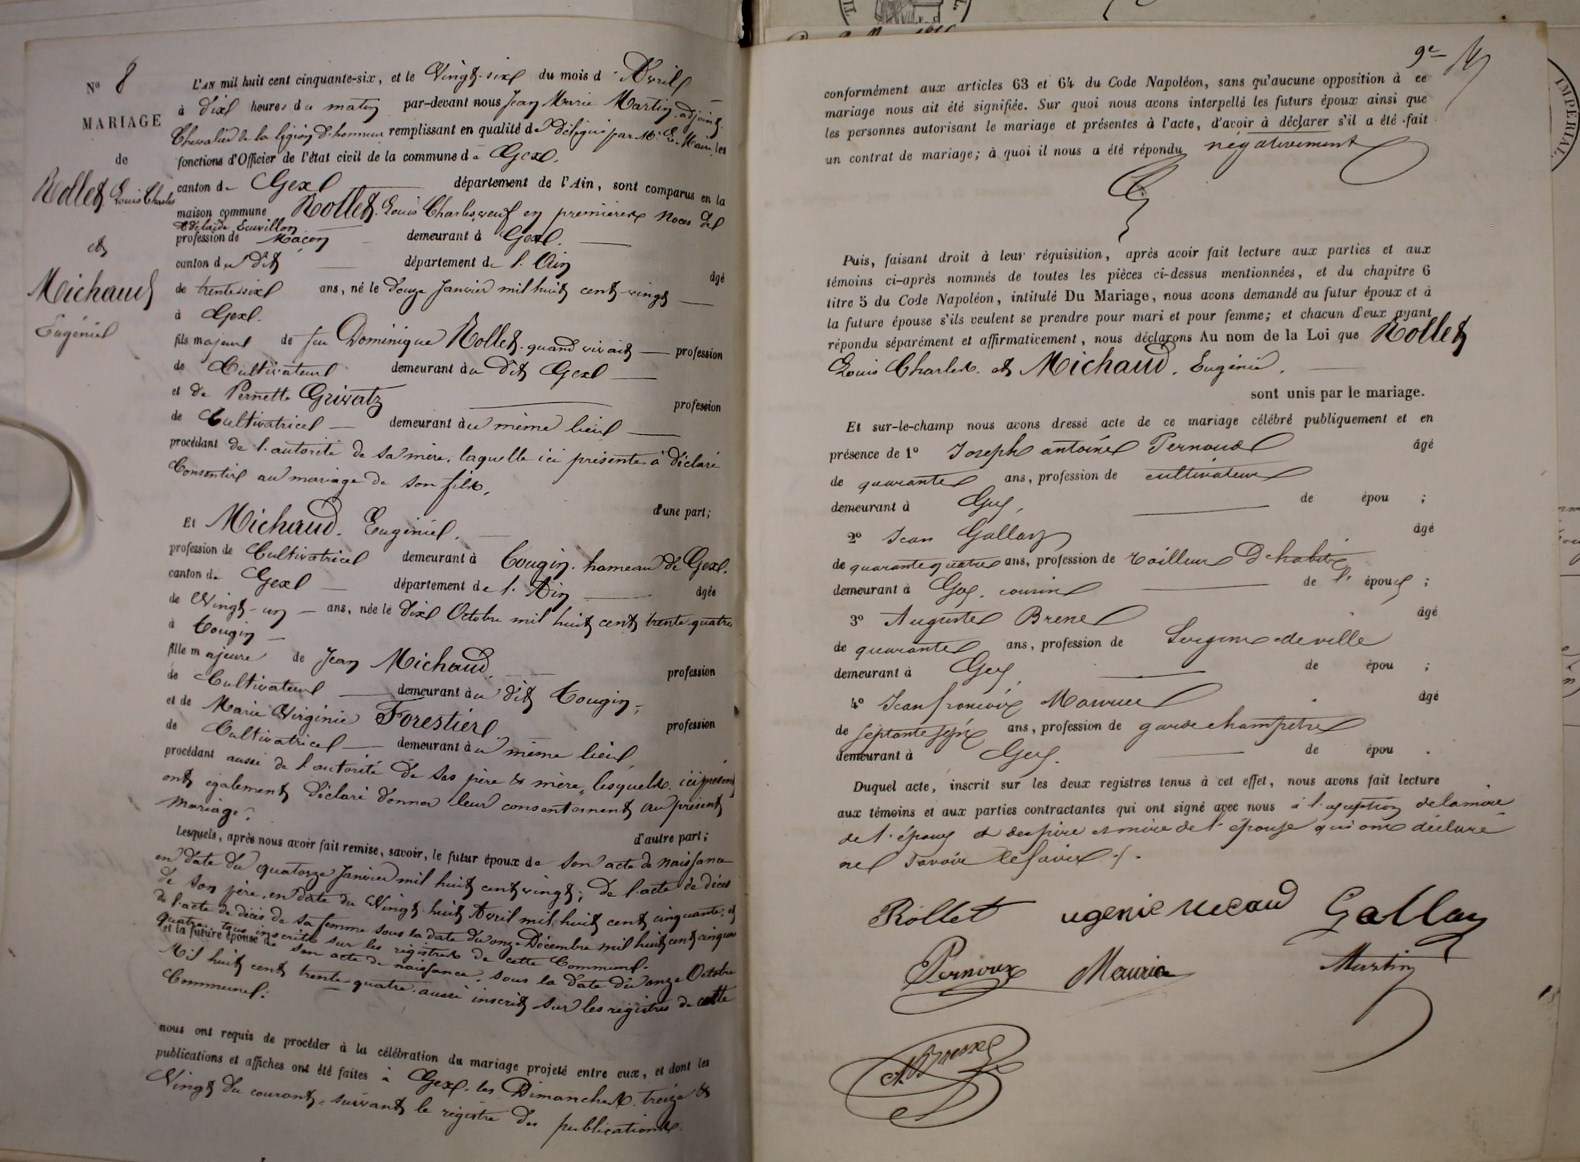 N° 8
MARIAGE
de
Rollet Louis Charles
et
Michaud
Eugénie
L'AN mil huit cent cinquante-six, et le Vingt-six du mois d'Avril
à dix heures du matin par-devant nous Jean Marie Martin, adjoint,
Chevalier de la légion d'honneur remplissant en qualité de Délégué par Mr. le Maire les
fonctions d'Officier de l'état civil de la commune de Gex.
canton de Gex département de l'Ain, sont comparus en la
maison commune Rollet, Louis Charles, veuf en premières Noces de
Adélaïde
profession de Maçon demeurant à Gex.
canton du dit département de l'Ain âgé
de trente six ans, né le douze Janvier mil huit cent vingt
à Gex.
fils majeur de feu Dominique Rollet quand vivait profession
de Cultivateur demeurant au dit Gex
et de Pernette Grivatz profession
de Cultivatrice demeurant au même lieu
procédant de l'autorité de sa mère, laquelle ici présente a déclaré
Consentir au mariage de son fils.
d'une part;
Et Michaud. Eugénie.
profession de Cultivatrice demeurant à Tougin, hameau de Gex.
canton de Gex département de l'Ain âgée
de Vingt-un ans, née le dix Octobre mil huit cent trente-quatre
à Tougin
fille majeure de Jean Michaud profession
de Cultivateur demeurant au dit Tougin,
et de Marie Virginie Forestier profession
de Cultivatrice demeurant au même lieu
procédant aussi de l'autorité de ses père & mère, lesquels, ici présents
ont également déclaré donner leur consentement au présent
mariage.
d'autre part;
Lesquels, après nous avoir fait remise, savoir, le futur époux de son acte de naissance
en date du quatorze Janvier mil huit cent vingt; de l'acte de décès
de son père, en date du Vingt-huit Avril mil huit cent cinquante; et
de l'acte de décès de sa femme sous la date du onze Décembre mil huit cent cinquante
quatre, tous inscrits sur les registres de cette Commune.
et la future épouse de son acte de naissance, sous la date du onze Octobre
Mil huit cent trente-quatre, aussi inscrit sur les registres de cette
Commune.
nous ont requis de procéder à la célébration du mariage projeté entre eux, et dont les
publications et affiches ont été faites à Gex, les Dimanches treize &
Vingt du courant, suivant le registre des publications.
9e
conformément aux articles 63 et 64 du Code Napoléon, sans qu'aucune opposition à ce
mariage nous ait été signifiée. Sur quoi nous avons interpellé les futurs époux ainsi que
les personnes autorisant le mariage et présentes à l'acte, d'avoir à déclarer s'il a été fait
un contrat de mariage; à quoi il nous a été répondu négativement
Puis, faisant droit à leur réquisition, après avoir fait lecture aux parties et aux
témoins ci-après nommés de toutes les pièces ci-dessus mentionnées, et du chapitre 6
titre 5 du Code Napoléon, intitulé Du Mariage, nous avons demandé au futur époux et à
la future épouse s'ils veulent se prendre pour mari et pour femme; et chacun d'eux ayant
répondu séparément et affirmativement, nous déclarons Au nom de la Loi que Rollet
Louis Charles et Michaud, Eugénie,
sont unis par le mariage.
Et sur-le-champ nous avons dressé acte de ce mariage célébré publiquement et en
présence de 1° Joseph antoine Pernoud âgé
de quarante ans, profession de cultivateur
demeurant à Gex, de épou ;
2° Jean Gallay âgé
de quarante quatre ans, profession de tailleur d'habits
demeurant à Gex, cousin de l'époux ;
3° Auguste Brenel âgé
de quarante ans, profession de Sergent de ville
demeurant à Gex, de épou ;
4° Jean françois Maurice âgé
de septante sept ans, profession de garde champêtre
demeurant à Gex. de épou .
Duquel acte, inscrit sur les deux registres tenus à cet effet, nous avons fait lecture
aux témoins et aux parties contractantes qui ont signé avec nous à l'exeption de la mère
de l'époux et des père et mère de l'épouse qui ont déclaré
ne savoir le faire ./.
Rollet ugenie Gallay
Pernoux Mauric Martin
IMPERIAL